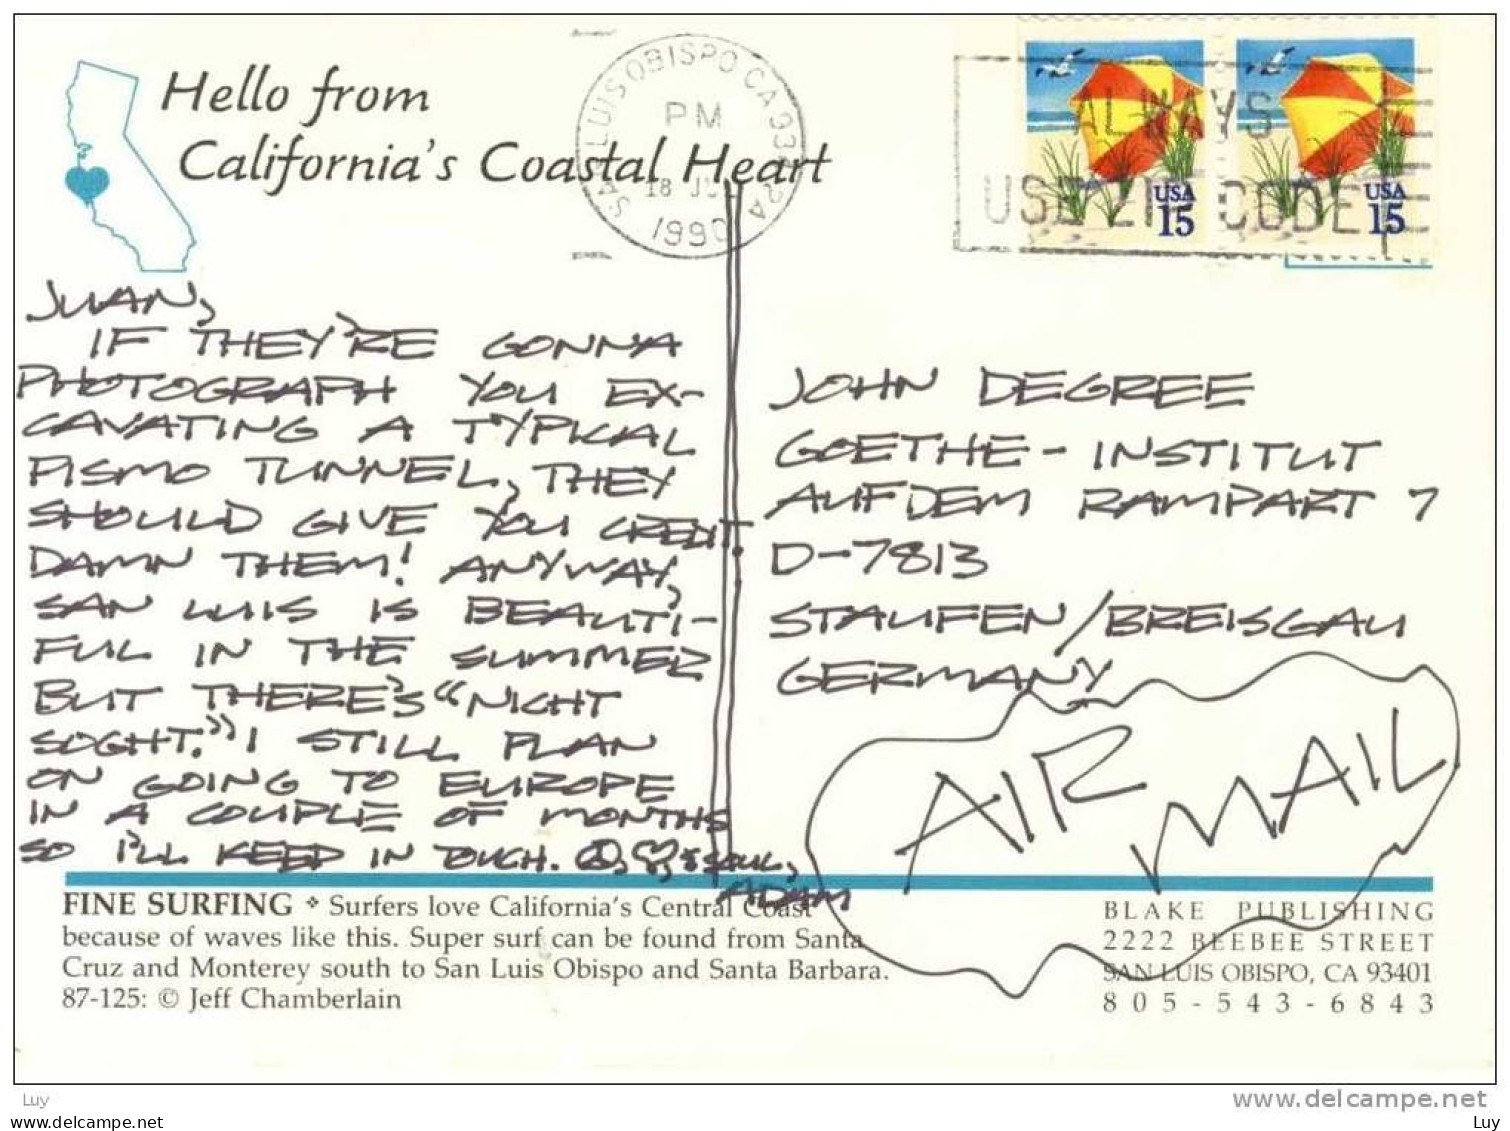 Hello from
California's Coastal Heart
SAN LUIS OBISPO CA 934
PM
18 JUL
1990
ALWAYS
USE ZIP CODE
USA
15
USA
15
JUAN,
IF THEY'RE GONNA
PHOTOGRAPH YOU EX-
CAVATING A TYPICAL
PISMO TUNNEL, THEY
SHOULD GIVE YOU CREDIT.
DAMN THEM! ANYWAY,
SAN LUIS IS BEAUTI-
FUL IN THE SUMMER
BUT THERE'S "NICHT
SOGHT." I STILL PLAN
ON GOING TO EUROPE
IN A COUPLE OF MONTHS
SO I'LL KEEP IN TOUCH. ☮, ♡, & SOUL,
ADAM
JOHN DEGREE
GOETHE-INSTITUT
AUF DEM RAMPART 7
D-7813
STAUFEN/BREISGAU
GERMANY
AIR MAIL
FINE SURFING ❖ Surfers love California's Central Coast
because of waves like this. Super surf can be found from Santa
Cruz and Monterey south to San Luis Obispo and Santa Barbara.
87-125: © Jeff Chamberlain
BLAKE PUBLISHING
2222 BEEBEE STREET
SAN LUIS OBISPO, CA 93401
805-543-6843
Luy
www.delcampe.net
www.delcampe.net
Luy